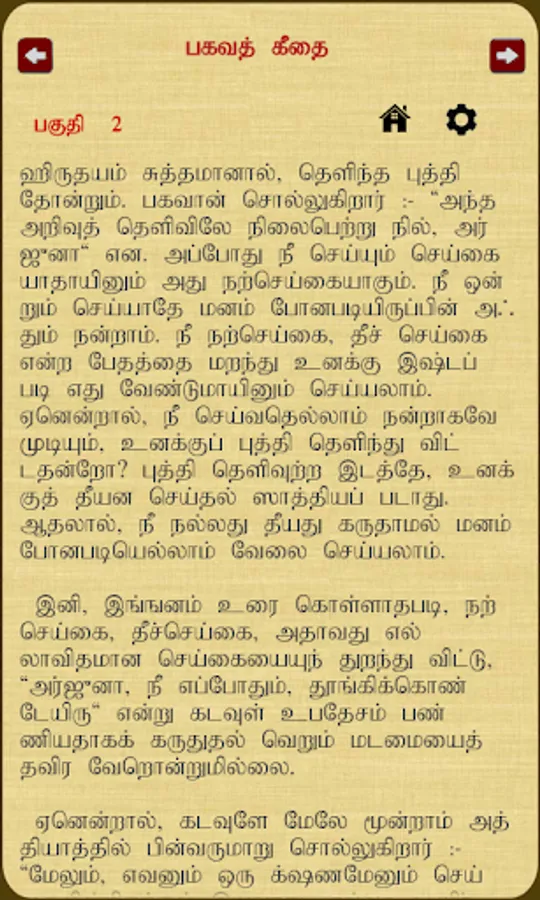 பகவத் கீதை
பகுதி 2
ஹிருதயம் சுத்தமானால், தெளிந்த புத்தி
தோன்றும். பகவான் சொல்லுகிறார் :- “அந்த
அறிவுத் தெளிவிலே நிலைபெற்று நில், அர்
ஜுனா“ என. அப்போது நீ செய்யும் செய்கை
யாதாயினும் அது நற்செய்கையாகும். நீ ஒன்
றும் செய்யாதே மனம் போனபடியிருப்பின் அஃ
தும் நன்றாம். நீ நற்செய்கை, தீச் செய்கை
என்ற பேதத்தை மறந்து உனக்கு இஷ்டப்
படி எது வேண்டுமாயினும் செய்யலாம்.
ஏனென்றால், நீ செய்வதெல்லாம் நன்றாகவே
முடியும், உனக்குப் புத்தி தெளிந்து விட்
டதன்றோ? புத்தி தெளிவுற்ற இடத்தே, உனக்
குத் தீயன செய்தல் ஸாத்தியப் படாது.
ஆதலால், நீ நல்லது தீயது கருதாமல் மனம்
போனபடியெல்லாம் வேலை செய்யலாம்.
இனி, இங்ஙனம் உரை கொள்ளாதபடி, நற்
செய்கை, தீச்செய்கை, அதாவது எல்
லாவிதமான செய்கையையுந் துறந்து விட்டு,
“அர்ஜுனா, நீ எப்போதும், தூங்கிக்கொண்
டேயிரு“ என்று கடவுள் உபதேசம் பண்
ணியதாகக் கருதுதல் வெறும் மடமையைத்
தவிர வேறொன்றுமில்லை.
ஏனென்றால், கடவுளே மேலே மூன்றாம் அத்
தியாத்தில் பின்வருமாறு சொல்லுகிறார் :-
“மேலும், எவனும் ஒரு க்ஷணமேனும் செய்